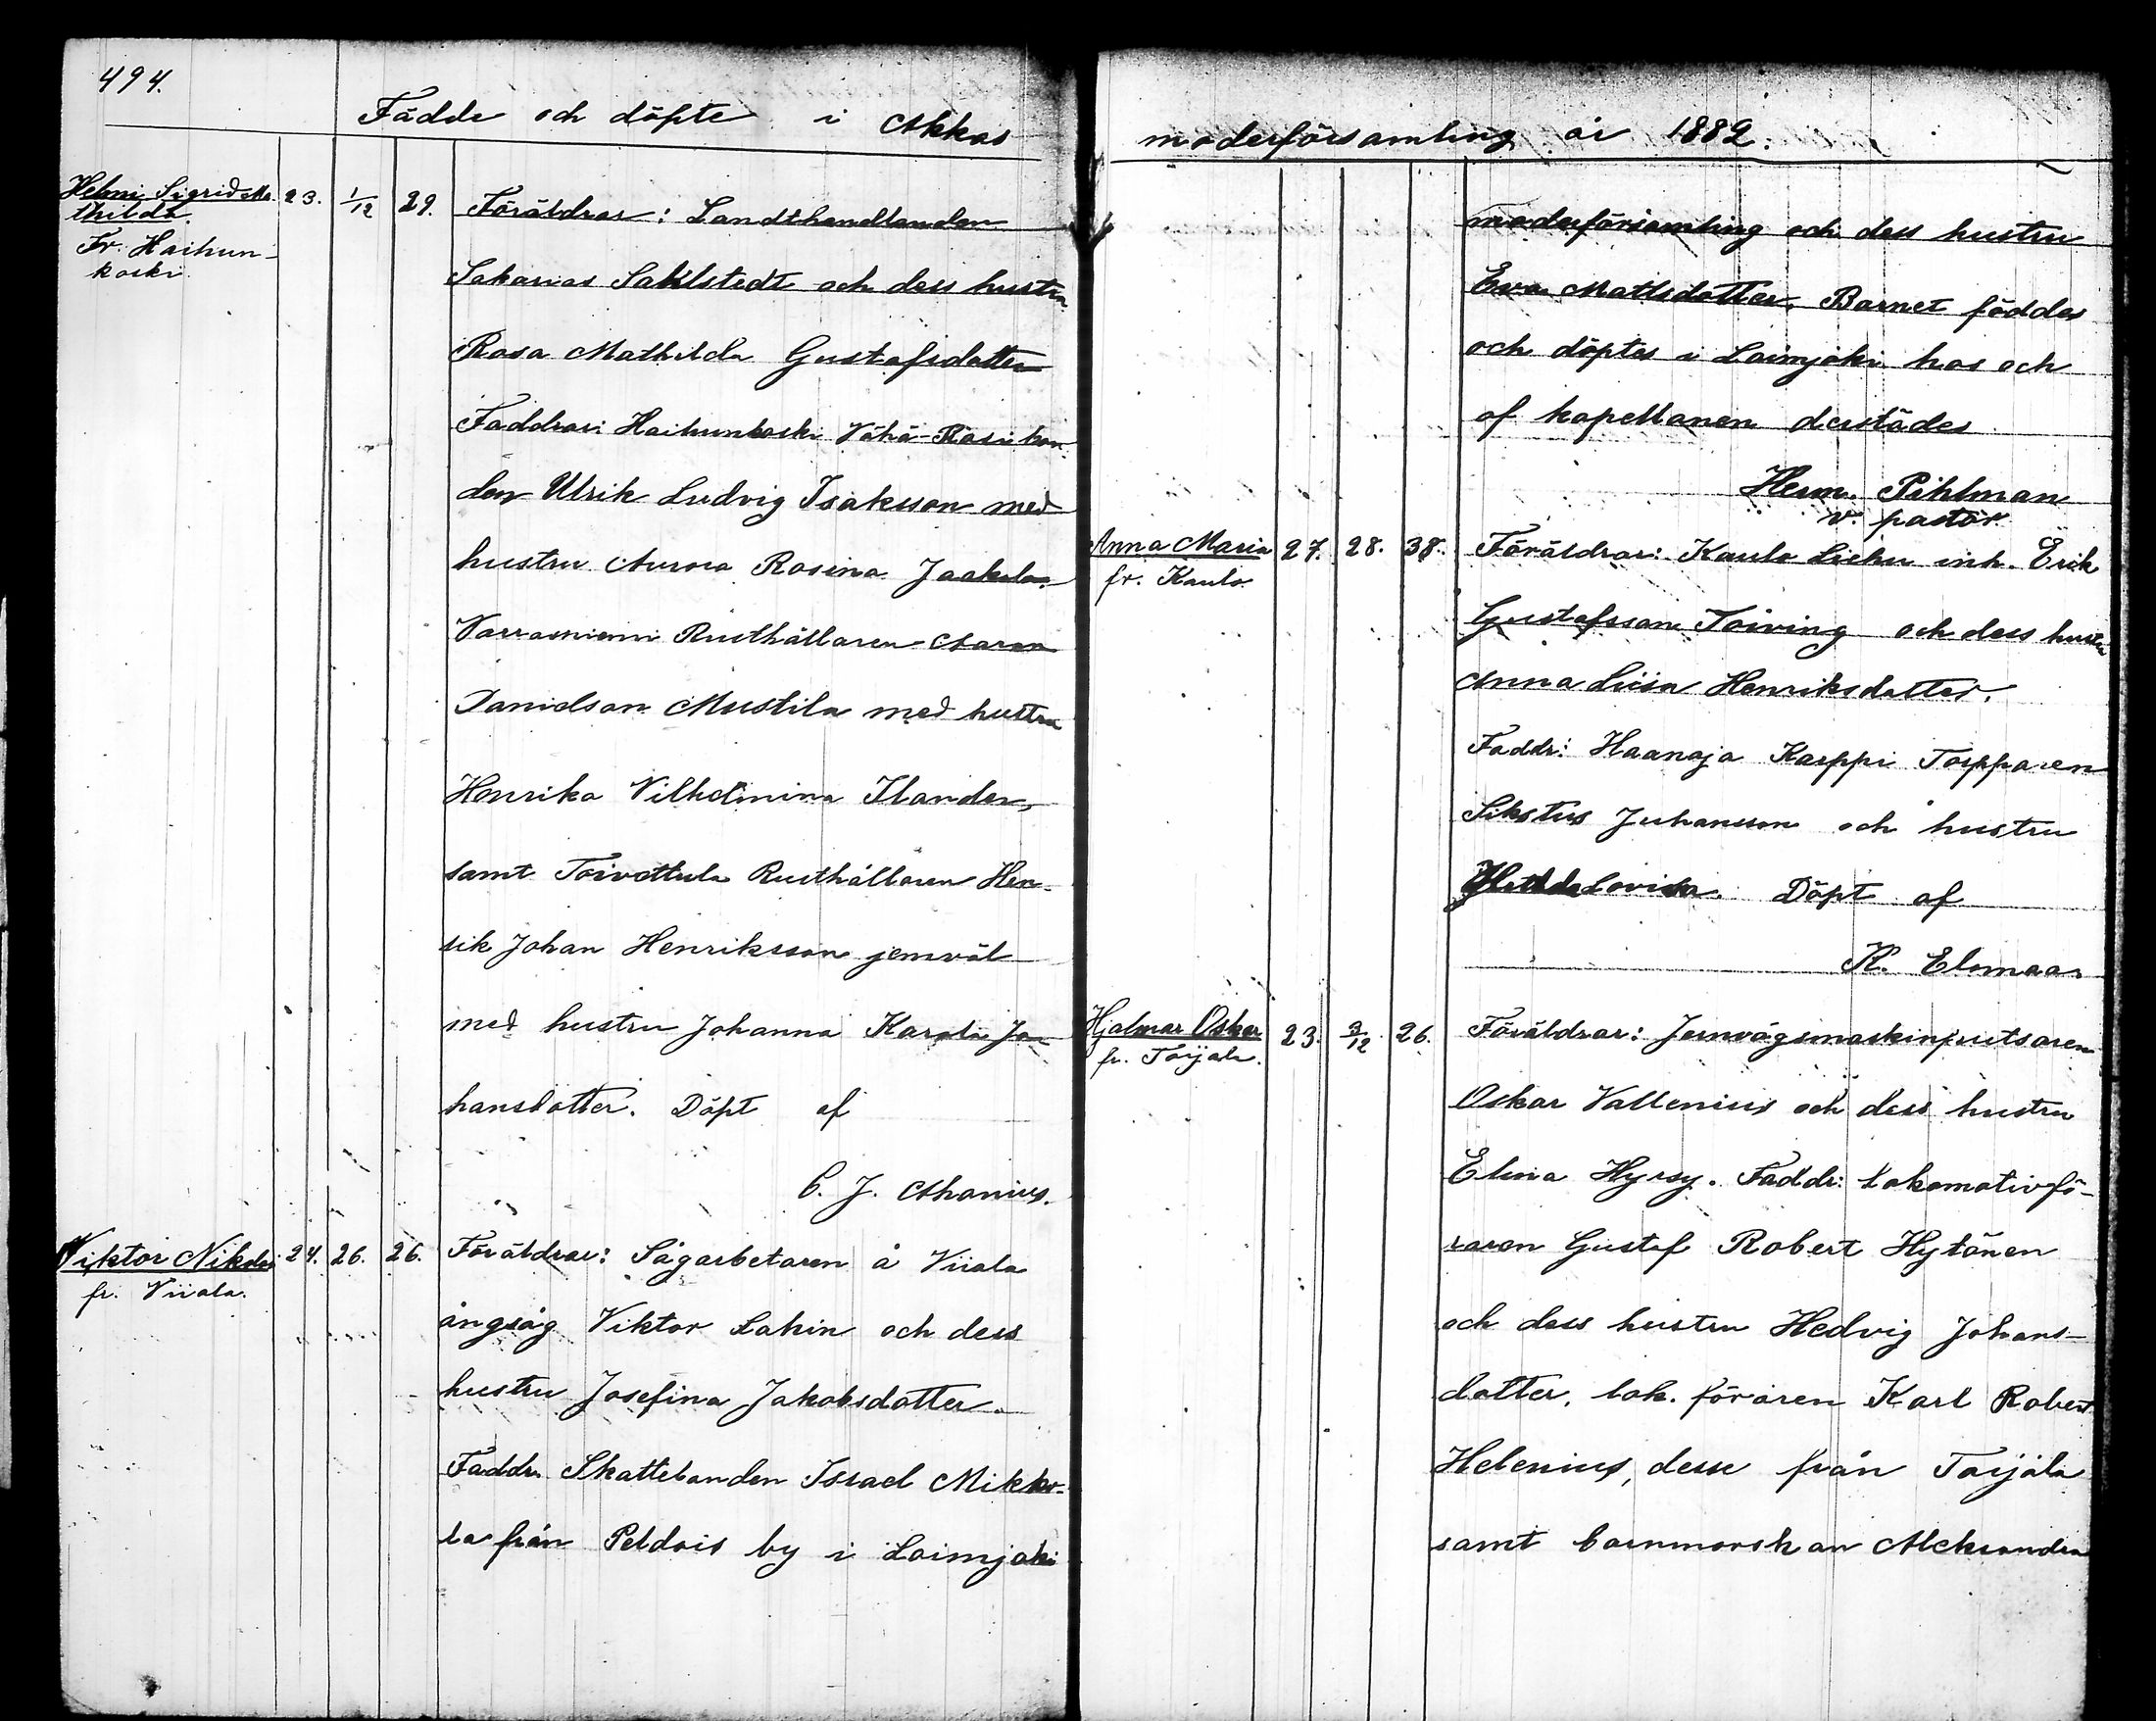 494.
Födde och döpte i Akkas
Helmi Sigrid Ma-
thilda.
Fr. Haihun-
koski.
23. 1/12 29.
Föräldrar: Landthandlanden
Sakarias Sahlstedt och dess hustru
Rosa Mathilda Gustafsdotter
Faddrar: Haihunkoski Vähä-Rasi bon-
den Ulrik Ludvig Isaksson med
hustru Aurora Rosina Jaakola.
Varrasniemi Rusthållaren Aaron
Danielson Mustila med hustru
Henrika Vilhelmina Ilander,
samt Toivottula Rusthållaren Hen-
rik Johan Henriksson jemväl
med hustru Johanna Karolina Jo-
hansdotter. Döpt af
C. J. Ahanius.
Viktor Nikolai
fr. Viiala.
24. 26. 26.
Föräldrar: Sågarbetaren å Viiala
ångsåg Viktor Lakin och dess
hustru Josefina Jakobsdotter.
Faddr. Skattebonden Israel Mikko-
la från Peldois by i Loimjoki
moderförsamling år 1882.
moderförsamling och dess hustru
Eva Mattsdotter. Barnet föddes
och döptes i Loimjoki hos och
af kapellanen derstädes
Herm. Pihlman
v. pastor
Anna Maria
fr. Kaulo.
27. 28. 38.
Föräldrar: Kaulo Liehu inh. Erik
Gustafsson Toiving och dess hustru
Anna Lisa Henriksdotter.
Faddr: Haanoja Karppi Torpparen
Sikstus Juhansson och hustru
Hilda Lovisa. Döpt af
K. Elomaa.
Hjalmar Oskar
fr. Toijala.
23. 3/12 26.
Föräldrar: Jernvägsmaskinputsaren
Oskar Vallenius och dess hustru
Elina Hyrsy. Faddr: Lokomotivfö-
raren Gustaf Robert Hytönen
och dess hustru Hedvig Johans-
dotter, lok. föraren Karl Robert
Helenius, desse från Toijala
samt barnmorskan Aleksandra